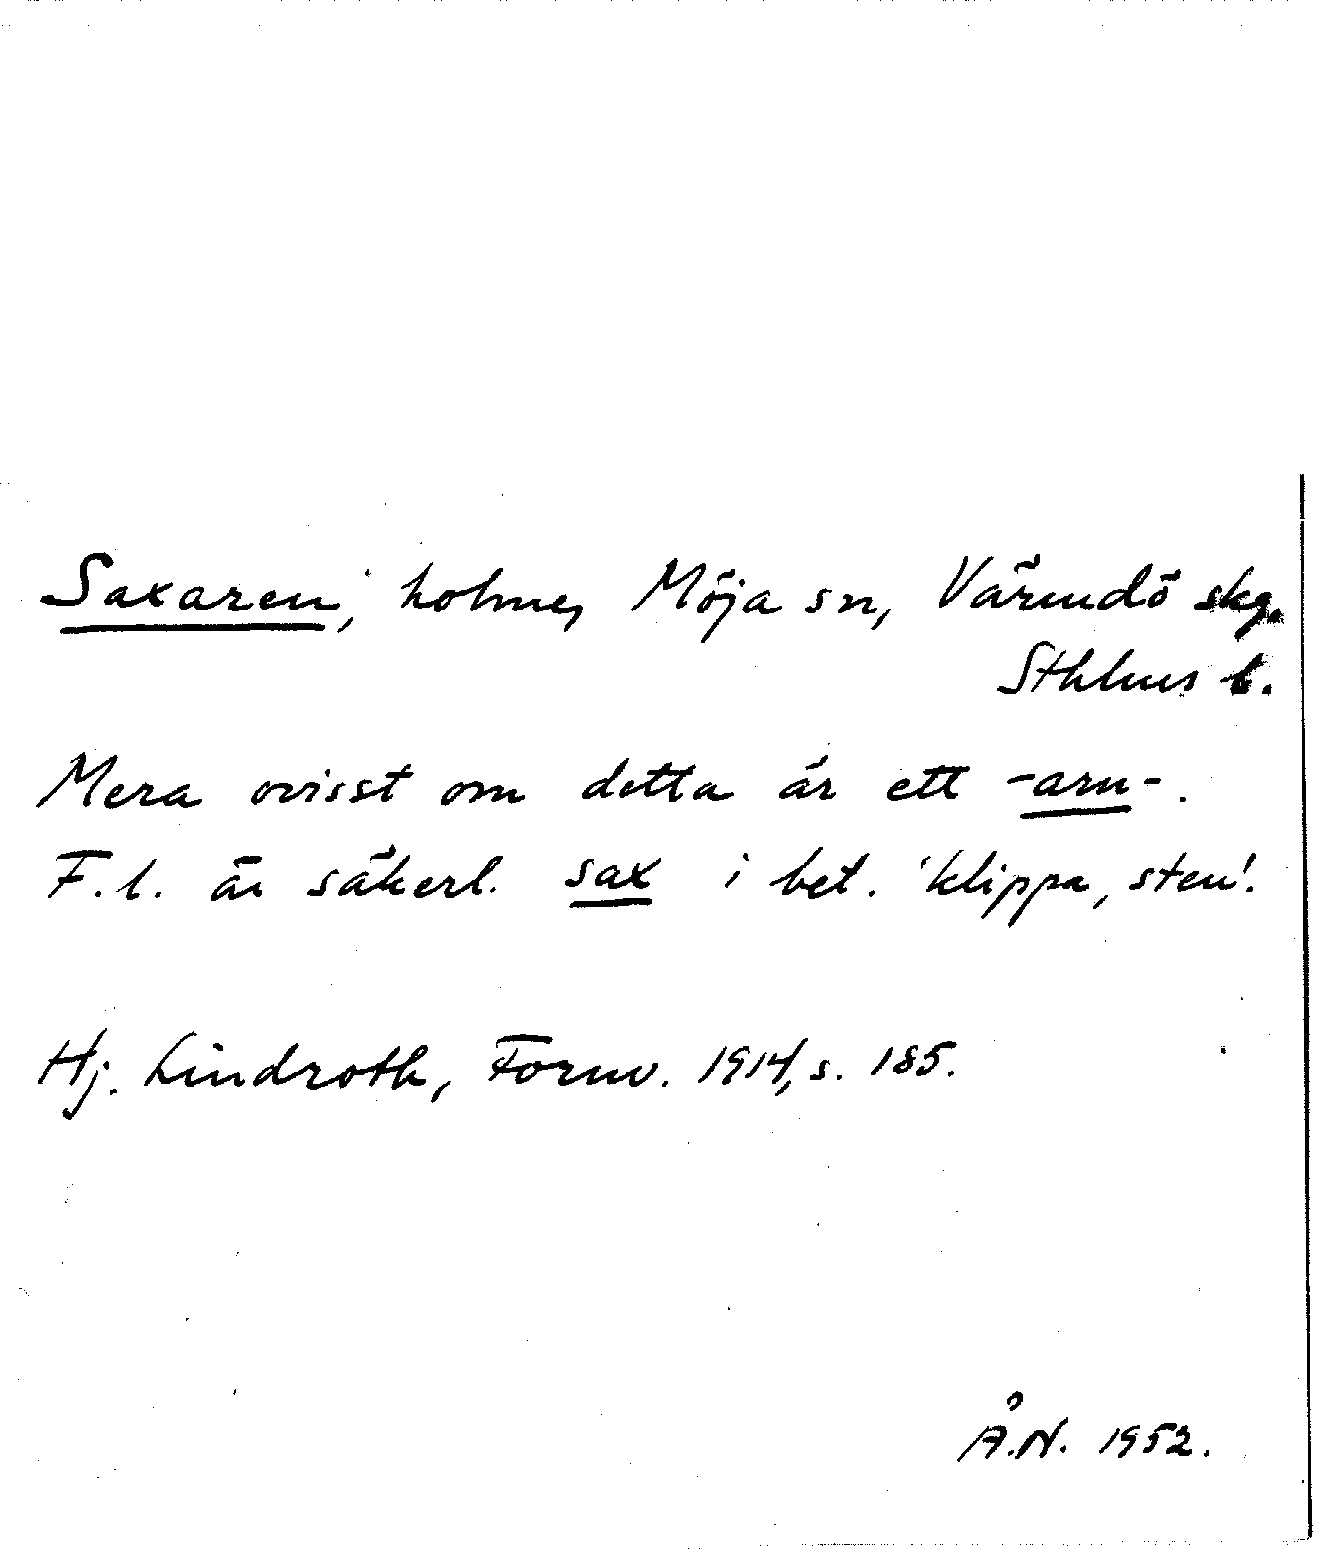 Saxaren, holme, Möja sn, Värmdö skg.
Sthlms l.
Mera ovisst om detta är ett -arn-.
F.l. är säkerl. sax i bet. 'klippa, sten'.
Hj. Lindroth, Fornv. 1914, s. 185.
Å.N. 1952.